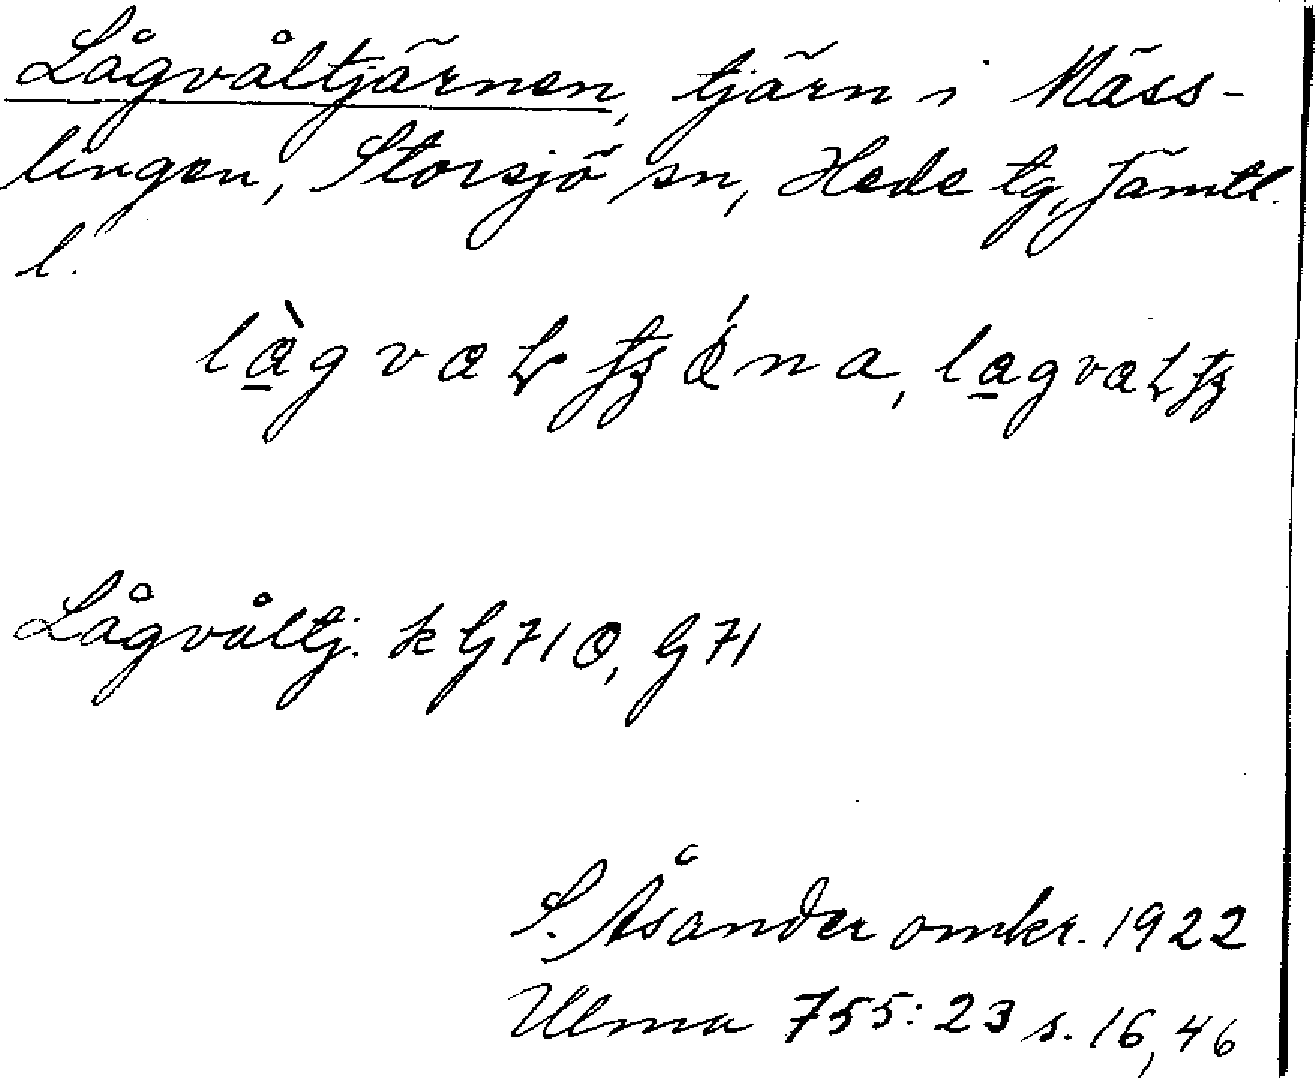 Lågvåltjärnen, tjärn i Mäss-
lingen, Storsjö sn, Hede tg, Jämtl.
l.
Lågvåltj. k G710, G71
S. Åsander omkr. 1922
Ulma 755:23 s. 16, 46